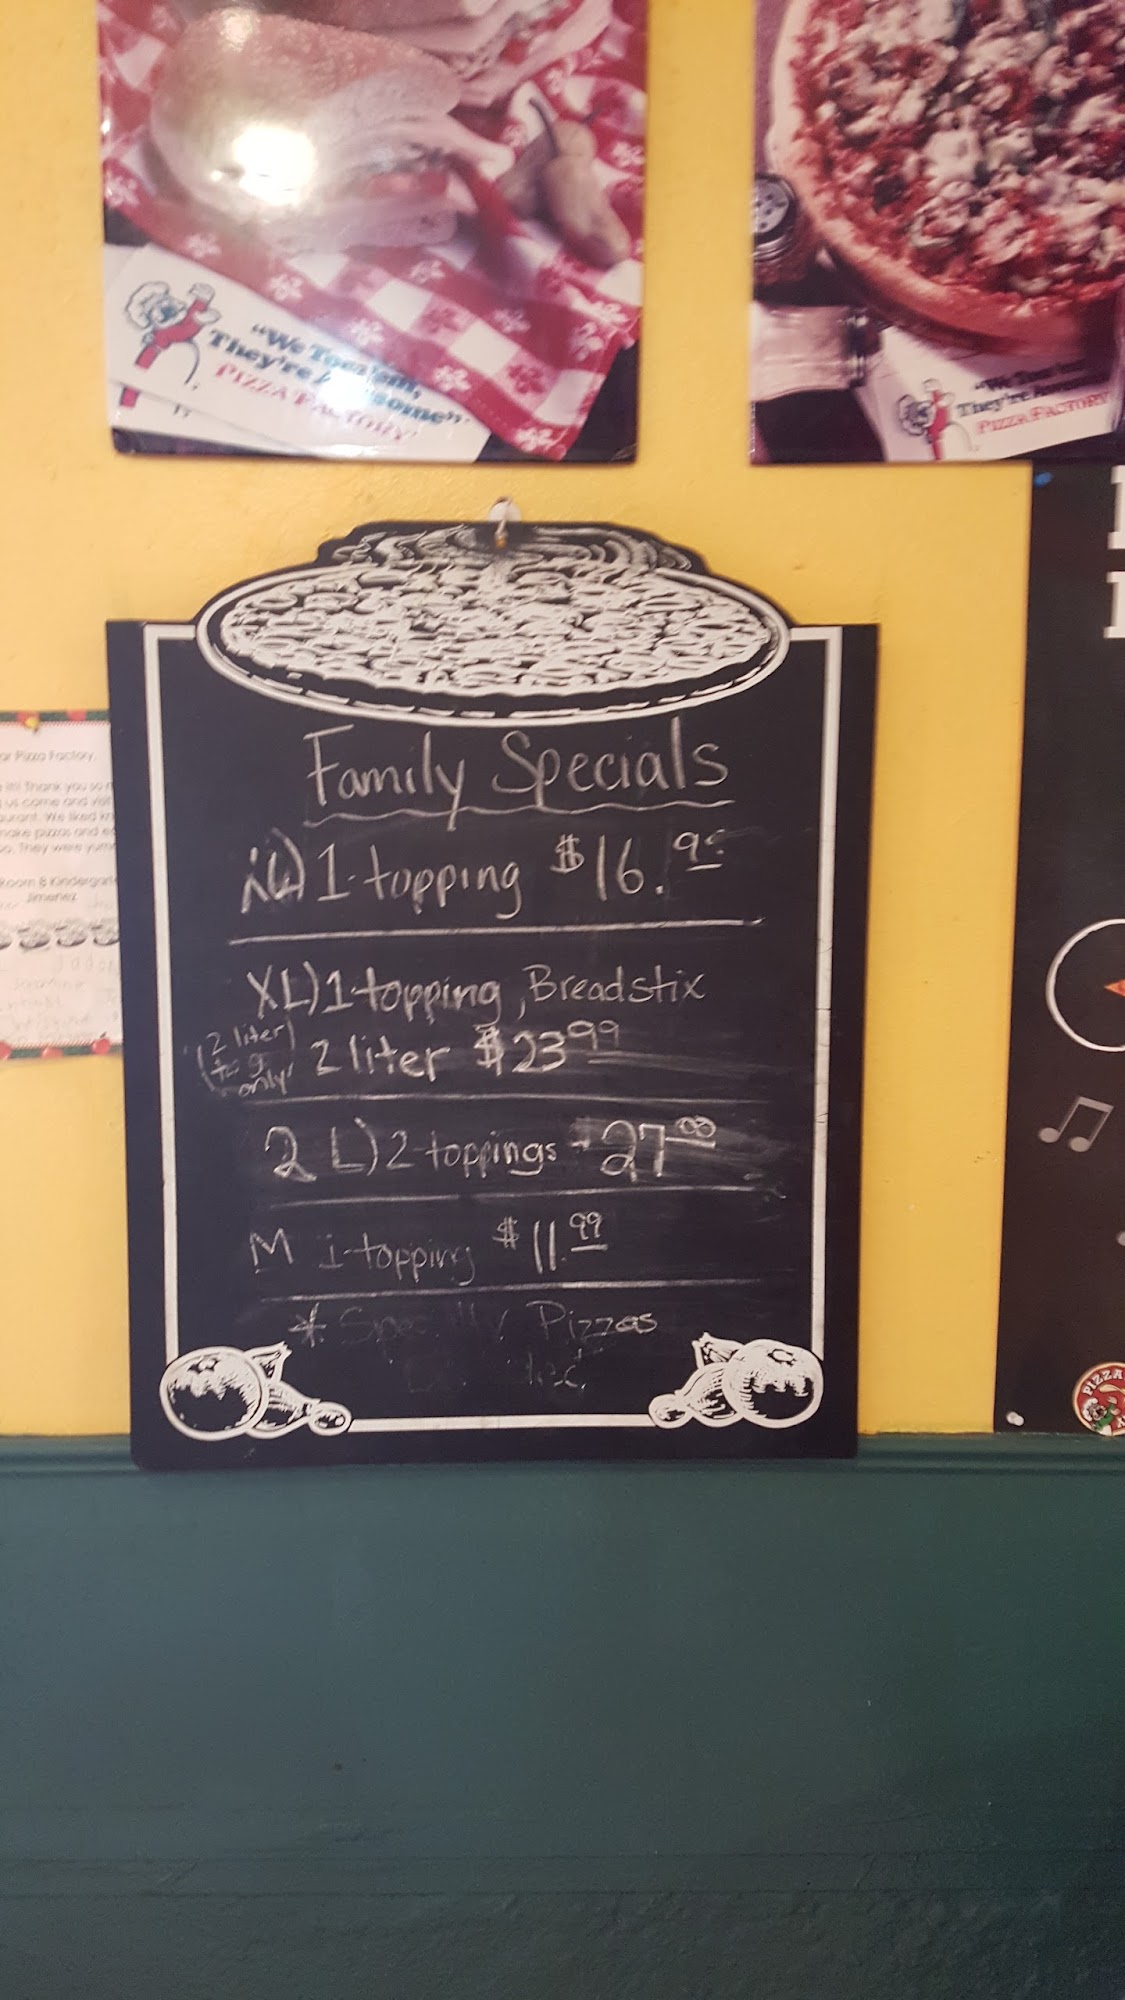 "We Toss'em,
They're Awesome"
PIZZA FACTORY
"We Toss'em,
They're Awesome"
PIZZA FACTORY
Family Specials
XL) 1-topping $16.99
XL) 1-topping, Breadstix
(2 liter)
(to go
only)
2 liter $23.99
2 L) 2-toppings 27.00
M 1-topping $11.99
* Specialty Pizzas
Pizza Factory,
Thank you so
us come and
We liked
make pizzas and
They were
Room & Kindergart
Jimenez
PIZZA